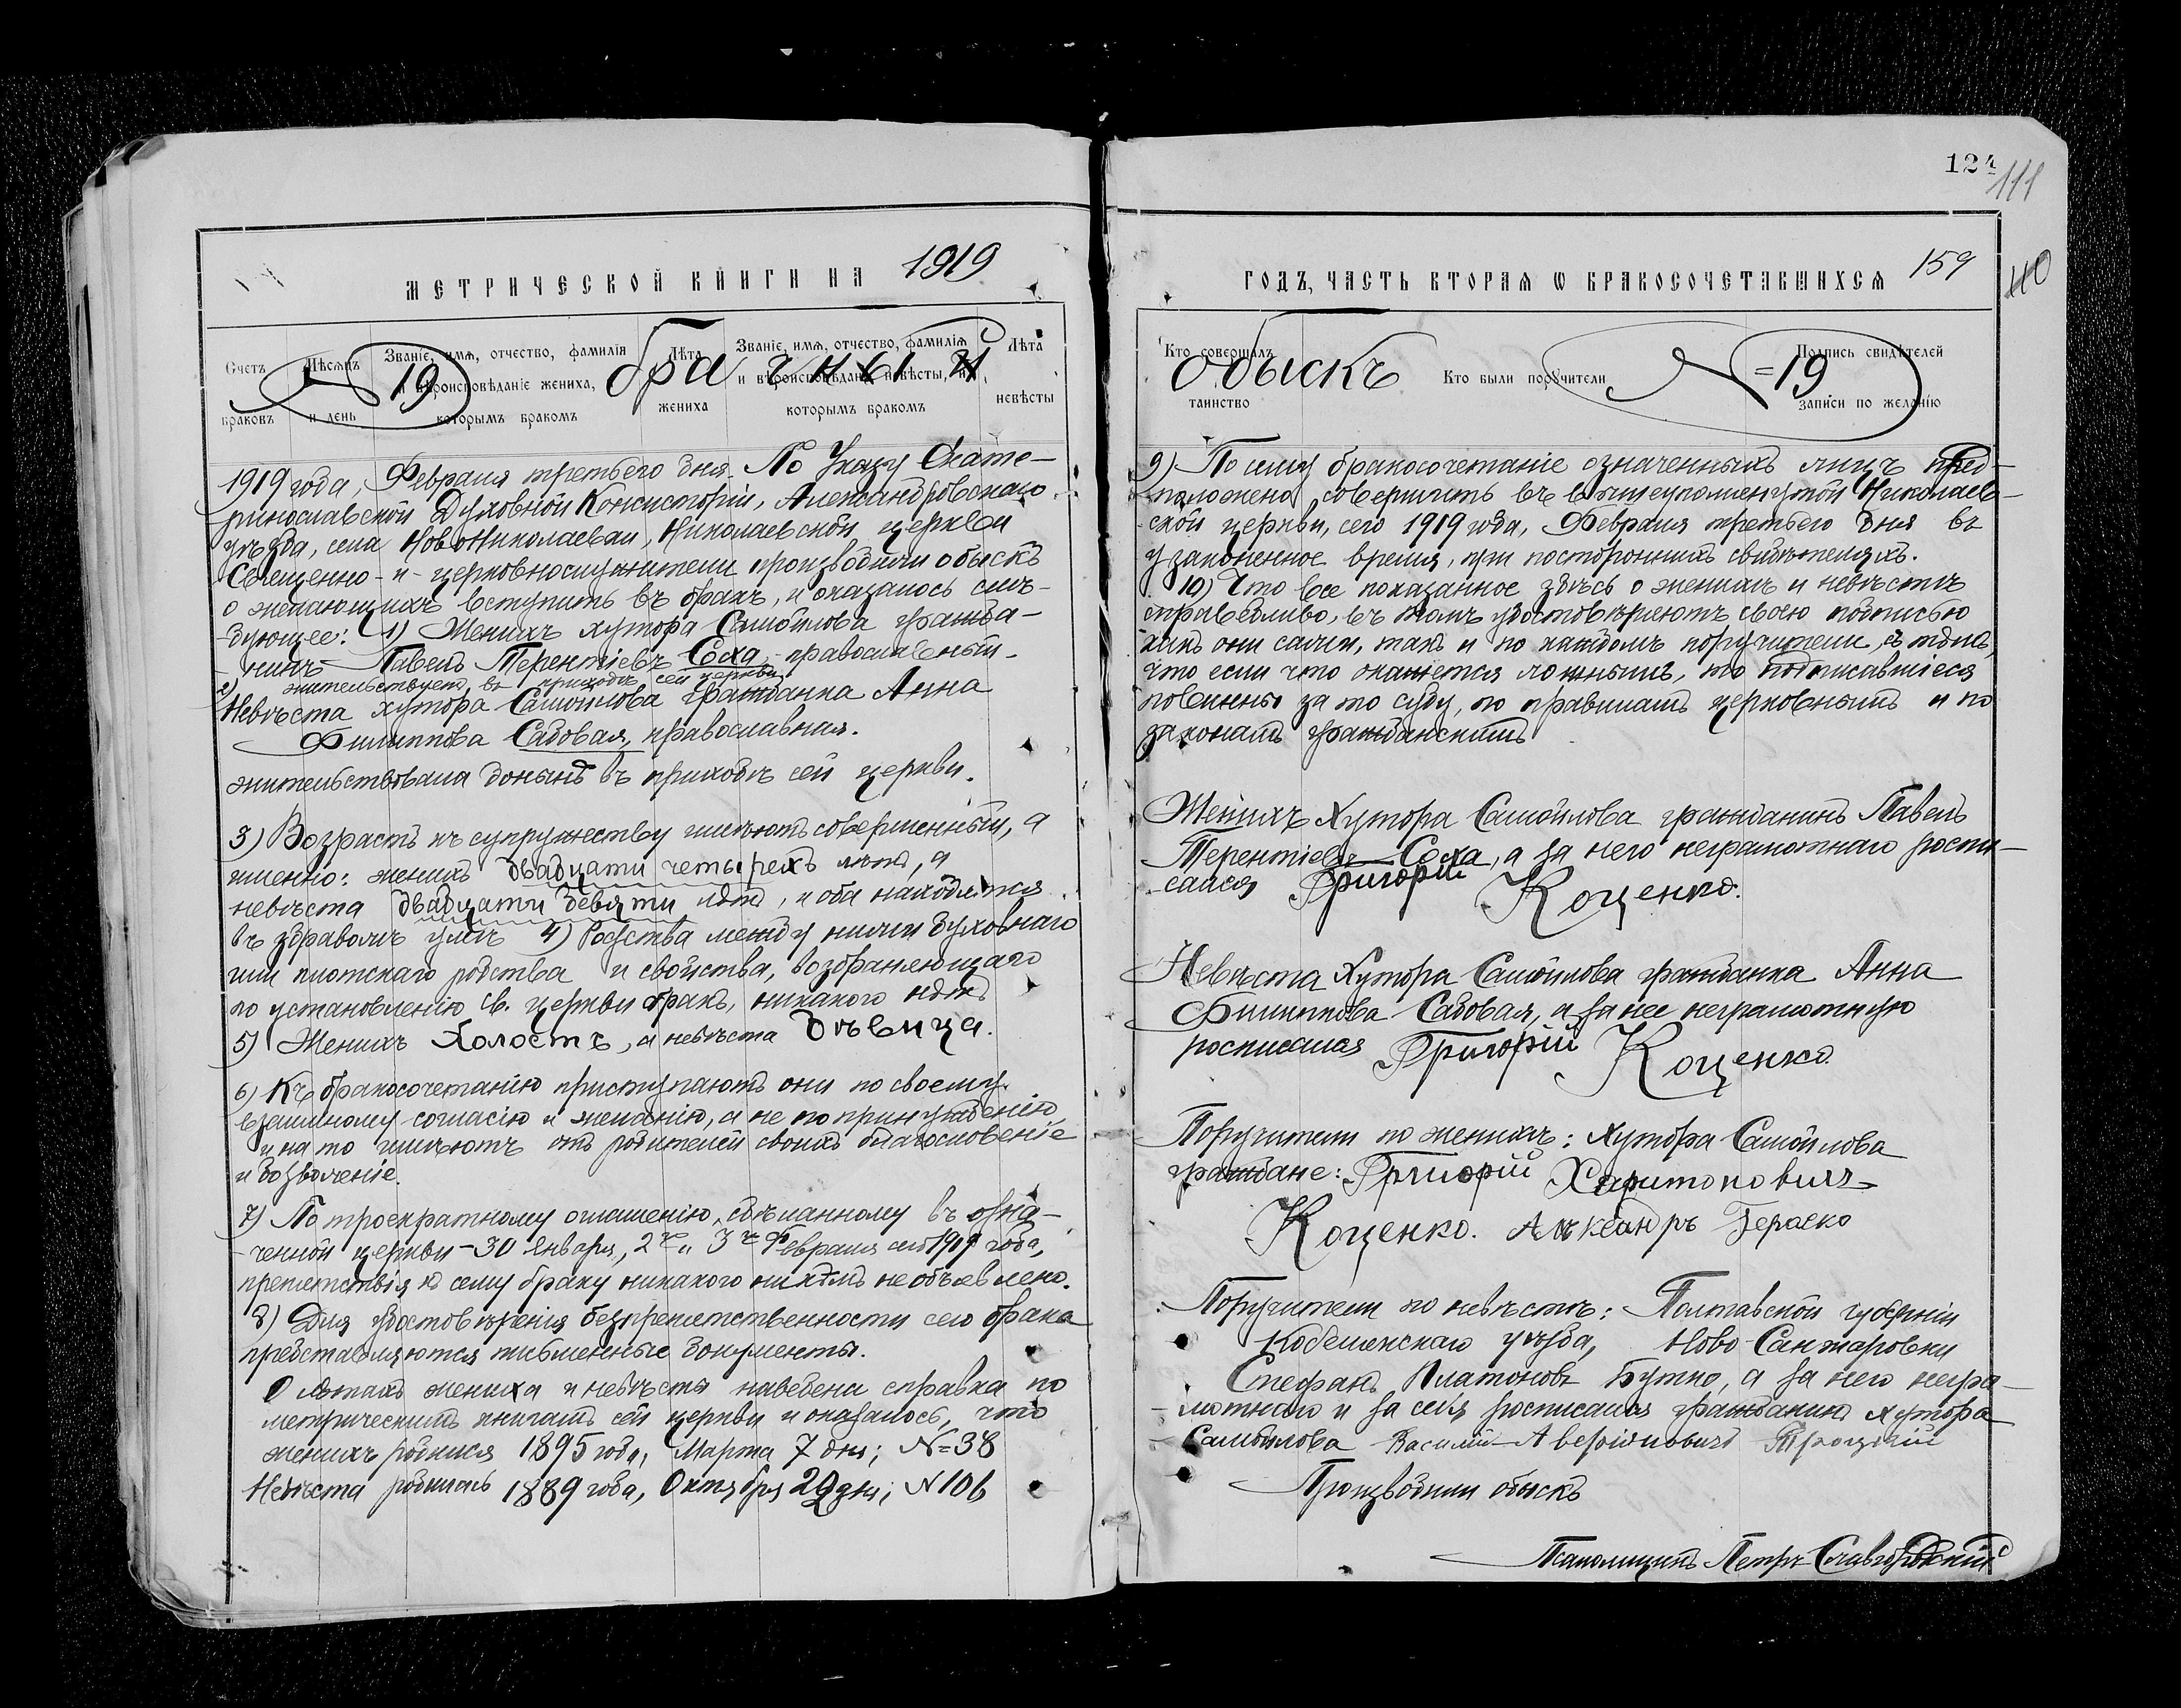 МЕТРИЧЕСКОЙ КНИГИ НА 1919
Счетъ браковъ
Мѣсяцъ и день
Званіе, имя, отчество, фамилія и вѣроисповѣданіе жениха, которымъ бракомъ
Лѣта жениха
Званіе, имя, отчество, фамилія и вѣроисповѣданіе невѣсты, и которымъ бракомъ
Лѣта невѣсты
№ 19 брачный
1919 года, Февраля третьего дня. По Указу Екате-
ринославской Духовной Консисторіи, Александровскаго
уѣзда, села НовоНиколаевки, Николаевской церкви
Священно-и-церковнослужители производили обыскъ
о желающихъ вступить въ бракъ, и оказалось слѣ-
дующее: 1) Женихъ хутора Самойлова гражда-
нинъ Павелъ Терентіевъ Соха, православный
жительствуетъ въ приходѣ сей церкви
2) Невѣста хутора Самойлова гражданка Анна
Филиппова Садовая, православная.
жительствовала донынѣ въ приходѣ сей церкви.
3) Возрастъ къ супружеству имѣютъ совершенный, а
именно: женихъ двадцати четырехъ лѣтъ, а
невѣста двадцати девяти лѣтъ, и оба находятся
въ здравомъ умѣ 4) Родства между ними духовнаго
или плотскаго родства и свойства, возбраняющаго
по установленію св. церкви бракъ, никакого нѣтъ
5) Женихъ Холостъ, а невѣста дѣвица.
6) Къ бракосочетанію приступаютъ они по своему
взаимному согласію и желанію, а не по принужденію,
и на то имѣютъ отъ родителей своихъ благословеніе
и дозволеніе.
7) По троекратному оглашенію, сдѣланному въ озна-
ченной церкви - 30 Января, 2го и 3го Февраля сего 1919 года,
препятствія къ сему браку никакого никѣмъ не объявлено.
8) Для удостовѣренія безпрепятственности сего брака
представляются письменные документы.
О лѣтахъ жениха и невѣсты наведена справка по
метрическимъ книгамъ сей церкви и оказалось, что
женихъ родился 1895 года, Марта 7 дня; №=38
Невѣста родилась 1889 года, Октября 29 дня; № 106
124
111
110
ГОДЪ, ЧАСТЬ ВТОРАЯ Ѡ БРАКОСОЧЕТАВШИХСЯ 159
Кто совершалъ таинство
Кто были поручители
Подпись свидѣтелей записи по желанію
Обыскъ №=19
9) По сему бракосочетаніе означенныхъ лицъ пред-
положено совершить въ вышеупомянутой Николаев-
ской церкви, сего 1919 года, Февраля третьего дня въ
узаконенное время, при постороннихъ свидѣтеляхъ.
10) Что все показанное здѣсь о женихѣ и невѣстѣ
справедливо, въ томъ удостовѣряютъ своею подписью
какъ они сами, такъ и по каждомъ поручители, съ тѣмъ,
что если что окажется ложнымъ, то подписавшіеся
повинны за то суду, по правиламъ церковнымъ и по
законамъ гражданскимъ
Женихъ Хутора Самойлова гражданинъ Павелъ
Терентіевъ Соха, а за него неграмотнаго роспи-
сался Григорій Коценко.
Невѣста Хутора Самойлова гражданка Анна
Филиппова Садовая, а за нее неграмотную
росписался Григорій Коценко.
Поручители по женихѣ: Хутора Самойлова
граждане: Григорій Харитоновичъ
Коценко. Александръ
Поручители по невѣстѣ: Полтавской губерніи
Кобелякскаго уѣзда, Ново-Санжаровки
Стефанъ Платоновъ Бутко, а за него негра-
мотнаго и за себя росписался гражданинъ хутора
Самойлова Василій Троцкій
Производили обыскъ
Псаломщикъ Петръ Славгородскій